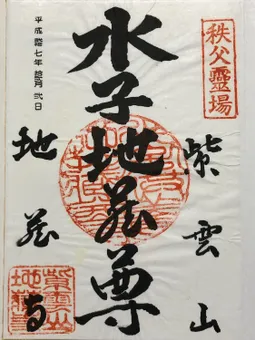 秩父靈場
紫雲山
水子地蔵尊
地蔵寺
平成廿七年拾月弐日
紫雲山
地蔵寺